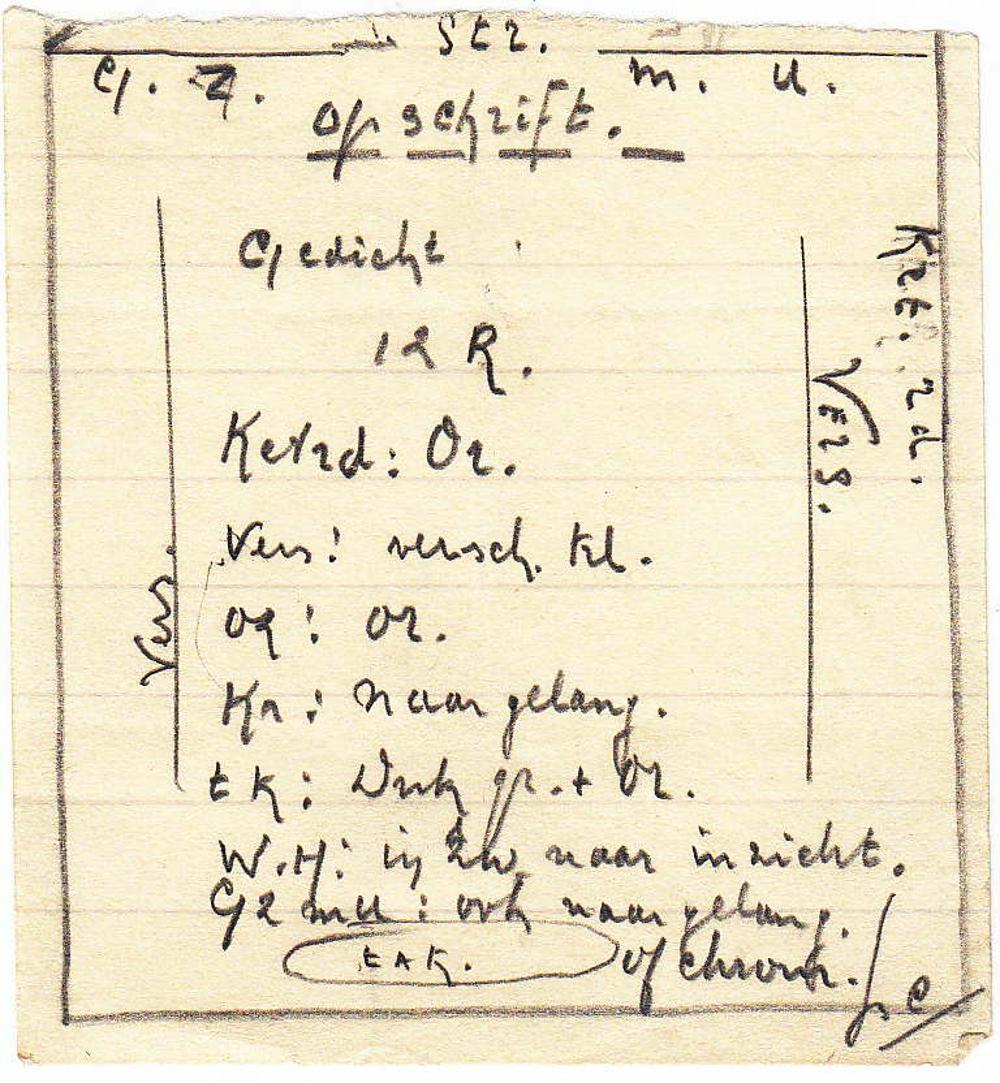 Str.
G. Z. m. u.
opschrift.
Gedicht
12 R.
Ketrd: Or.
Vers: versch. kl.
og: or.
Kr: naar gelang.
tk: Dnk gr. + Or.
W.H: in zw naar inzicht.
GZ mu: ook naar gelang.
tak. of chrom.
Vers.
Vers.
Krt. rd.